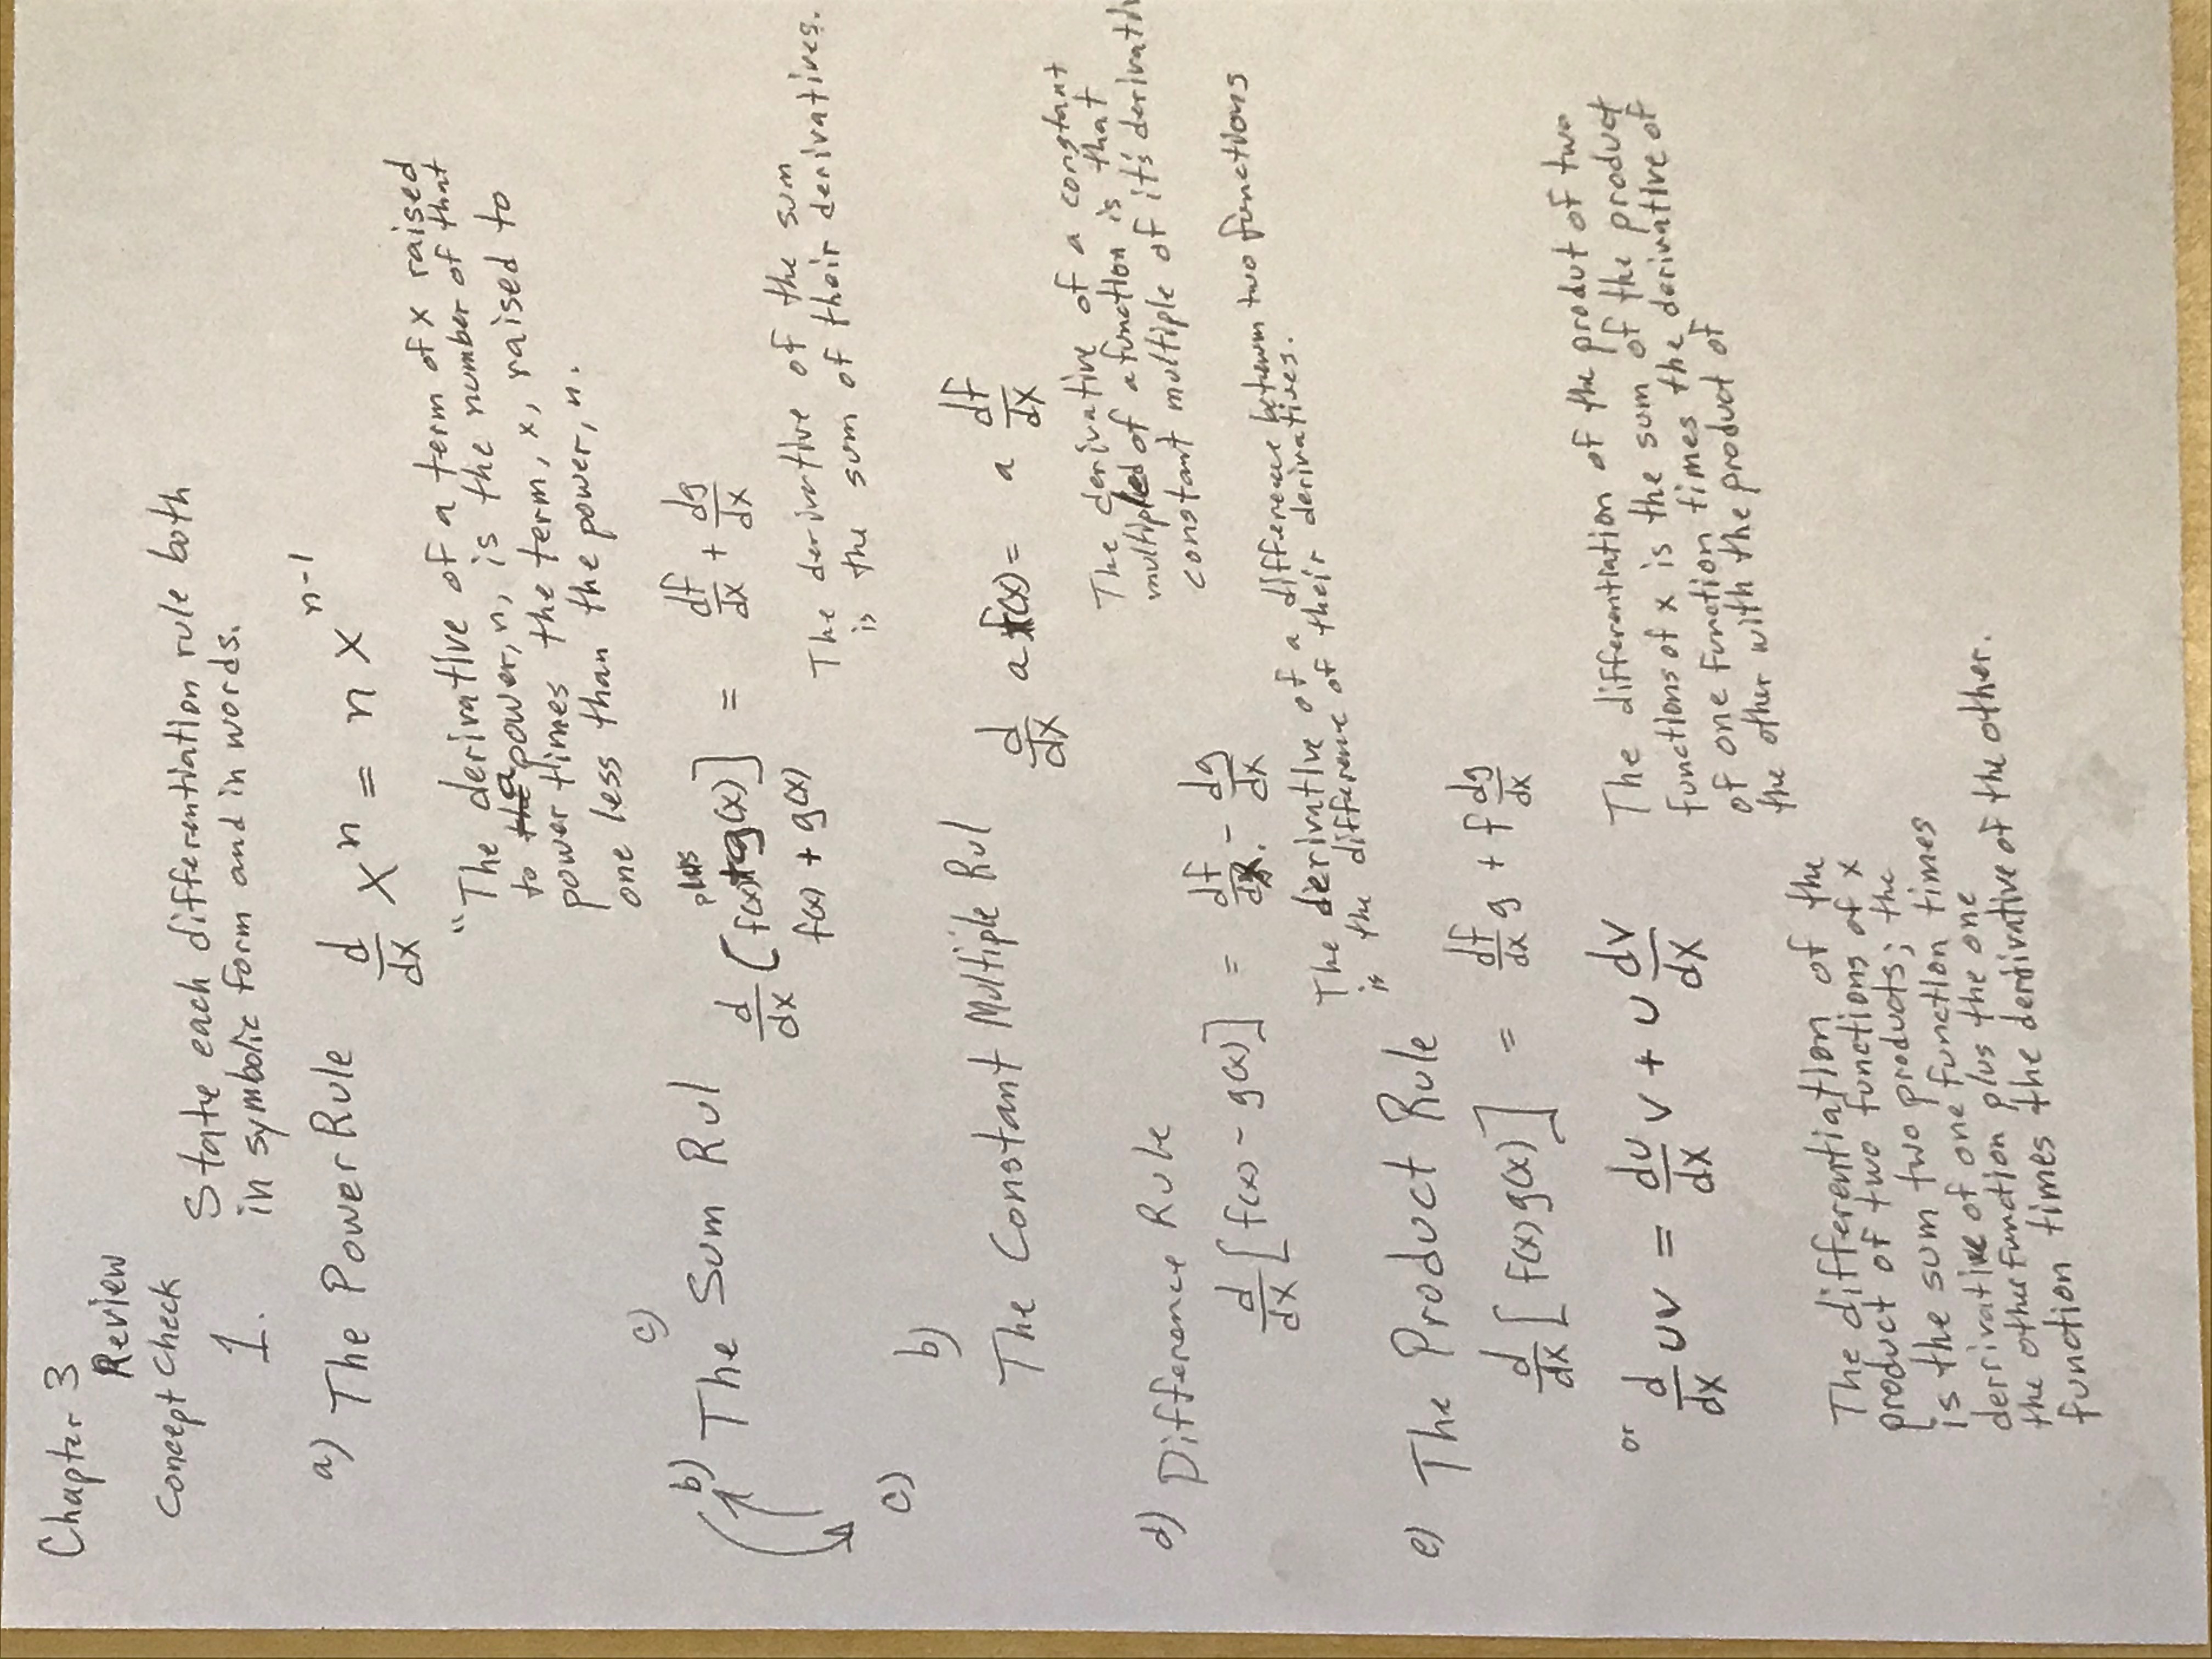 Chapter 3
Review
Concept Check
1. State each differentiation rule both
in symbolic form and in words.
a) The Power Rule d/dx x^n = n x^(n-1)
"The derivative of a term of x raised
to the a power, n, is the number of that
power times the term, x, raised to
one less than the power, n.
c)
b) The Sum Rul d/dx [f(x)+g(x)] = df/dx + dg/dx
plus
f(x) + g(x)
The derivative of the sum
is the sum of their derivatives.
c)
b)
The Constant Multiple Rul d/dx a f(x) = a df/dx
The derivative of a constant
multipled of a function is that
constant multiple of it's derivativ
d) Difference Rule
d/dx [f(x) - g(x)] = df/dx - dg/dx
The derivative of a difference between two functions
is the difference of their derivatives.
e) The Product Rule
d/dx [f(x)g(x)] = df/dx g + f dg/dx
or d/dx uv = du/dx v + u dv/dx
The differentiation of the produt of two
functions of x is the sum of the product
of one function times the derivative of
the other with the product of
The differentiation of the
product of two functions of x
is the sum two products; the
derrivative of one function times
the other function plus the one
function times the derivative of the other.